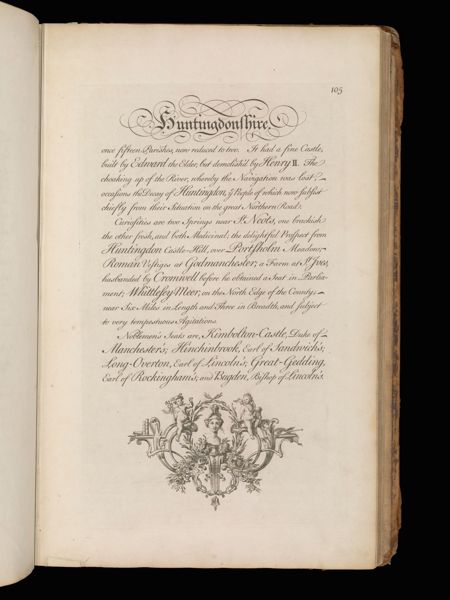 105
Huntingdonshire.
once fifteen Parishes, now reduced to two. It had a fine Castle,
built by Edward the Elder, but demolish'd by Henry II. The
choaking up of the River, whereby the Navigation was lost,
occasions the Decay of Huntingdon, ye People of which now subsist
chiefly from their Situation on the great Northern Road.
Curiosities are two Springs near St. Neots, one brackish
the other fresh, and both Medicinal; the delightful Prospect from
Huntingdon Castle-Hill, over Portsholm Meadow;
Roman Vestiges at Godmanchester; a Farm at St. Ives,
husbanded by Cromwell before he obtained a Seat in Parlia-
ment; Whittlesey-Meer, on the North Edge of the County,
near Six Miles in Length and Three in Breadth, and subject
to very tempestuous Agitations.
Noblemen's Seats are, Kimbolton-Castle, Duke of
Manchester's; Hinchinbrook, Earl of Sandwich's;
Long-Overton, Earl of Lincoln's; Great-Gedding,
Earl of Rockingham's; and Bugden, Bishop of Lincoln's.